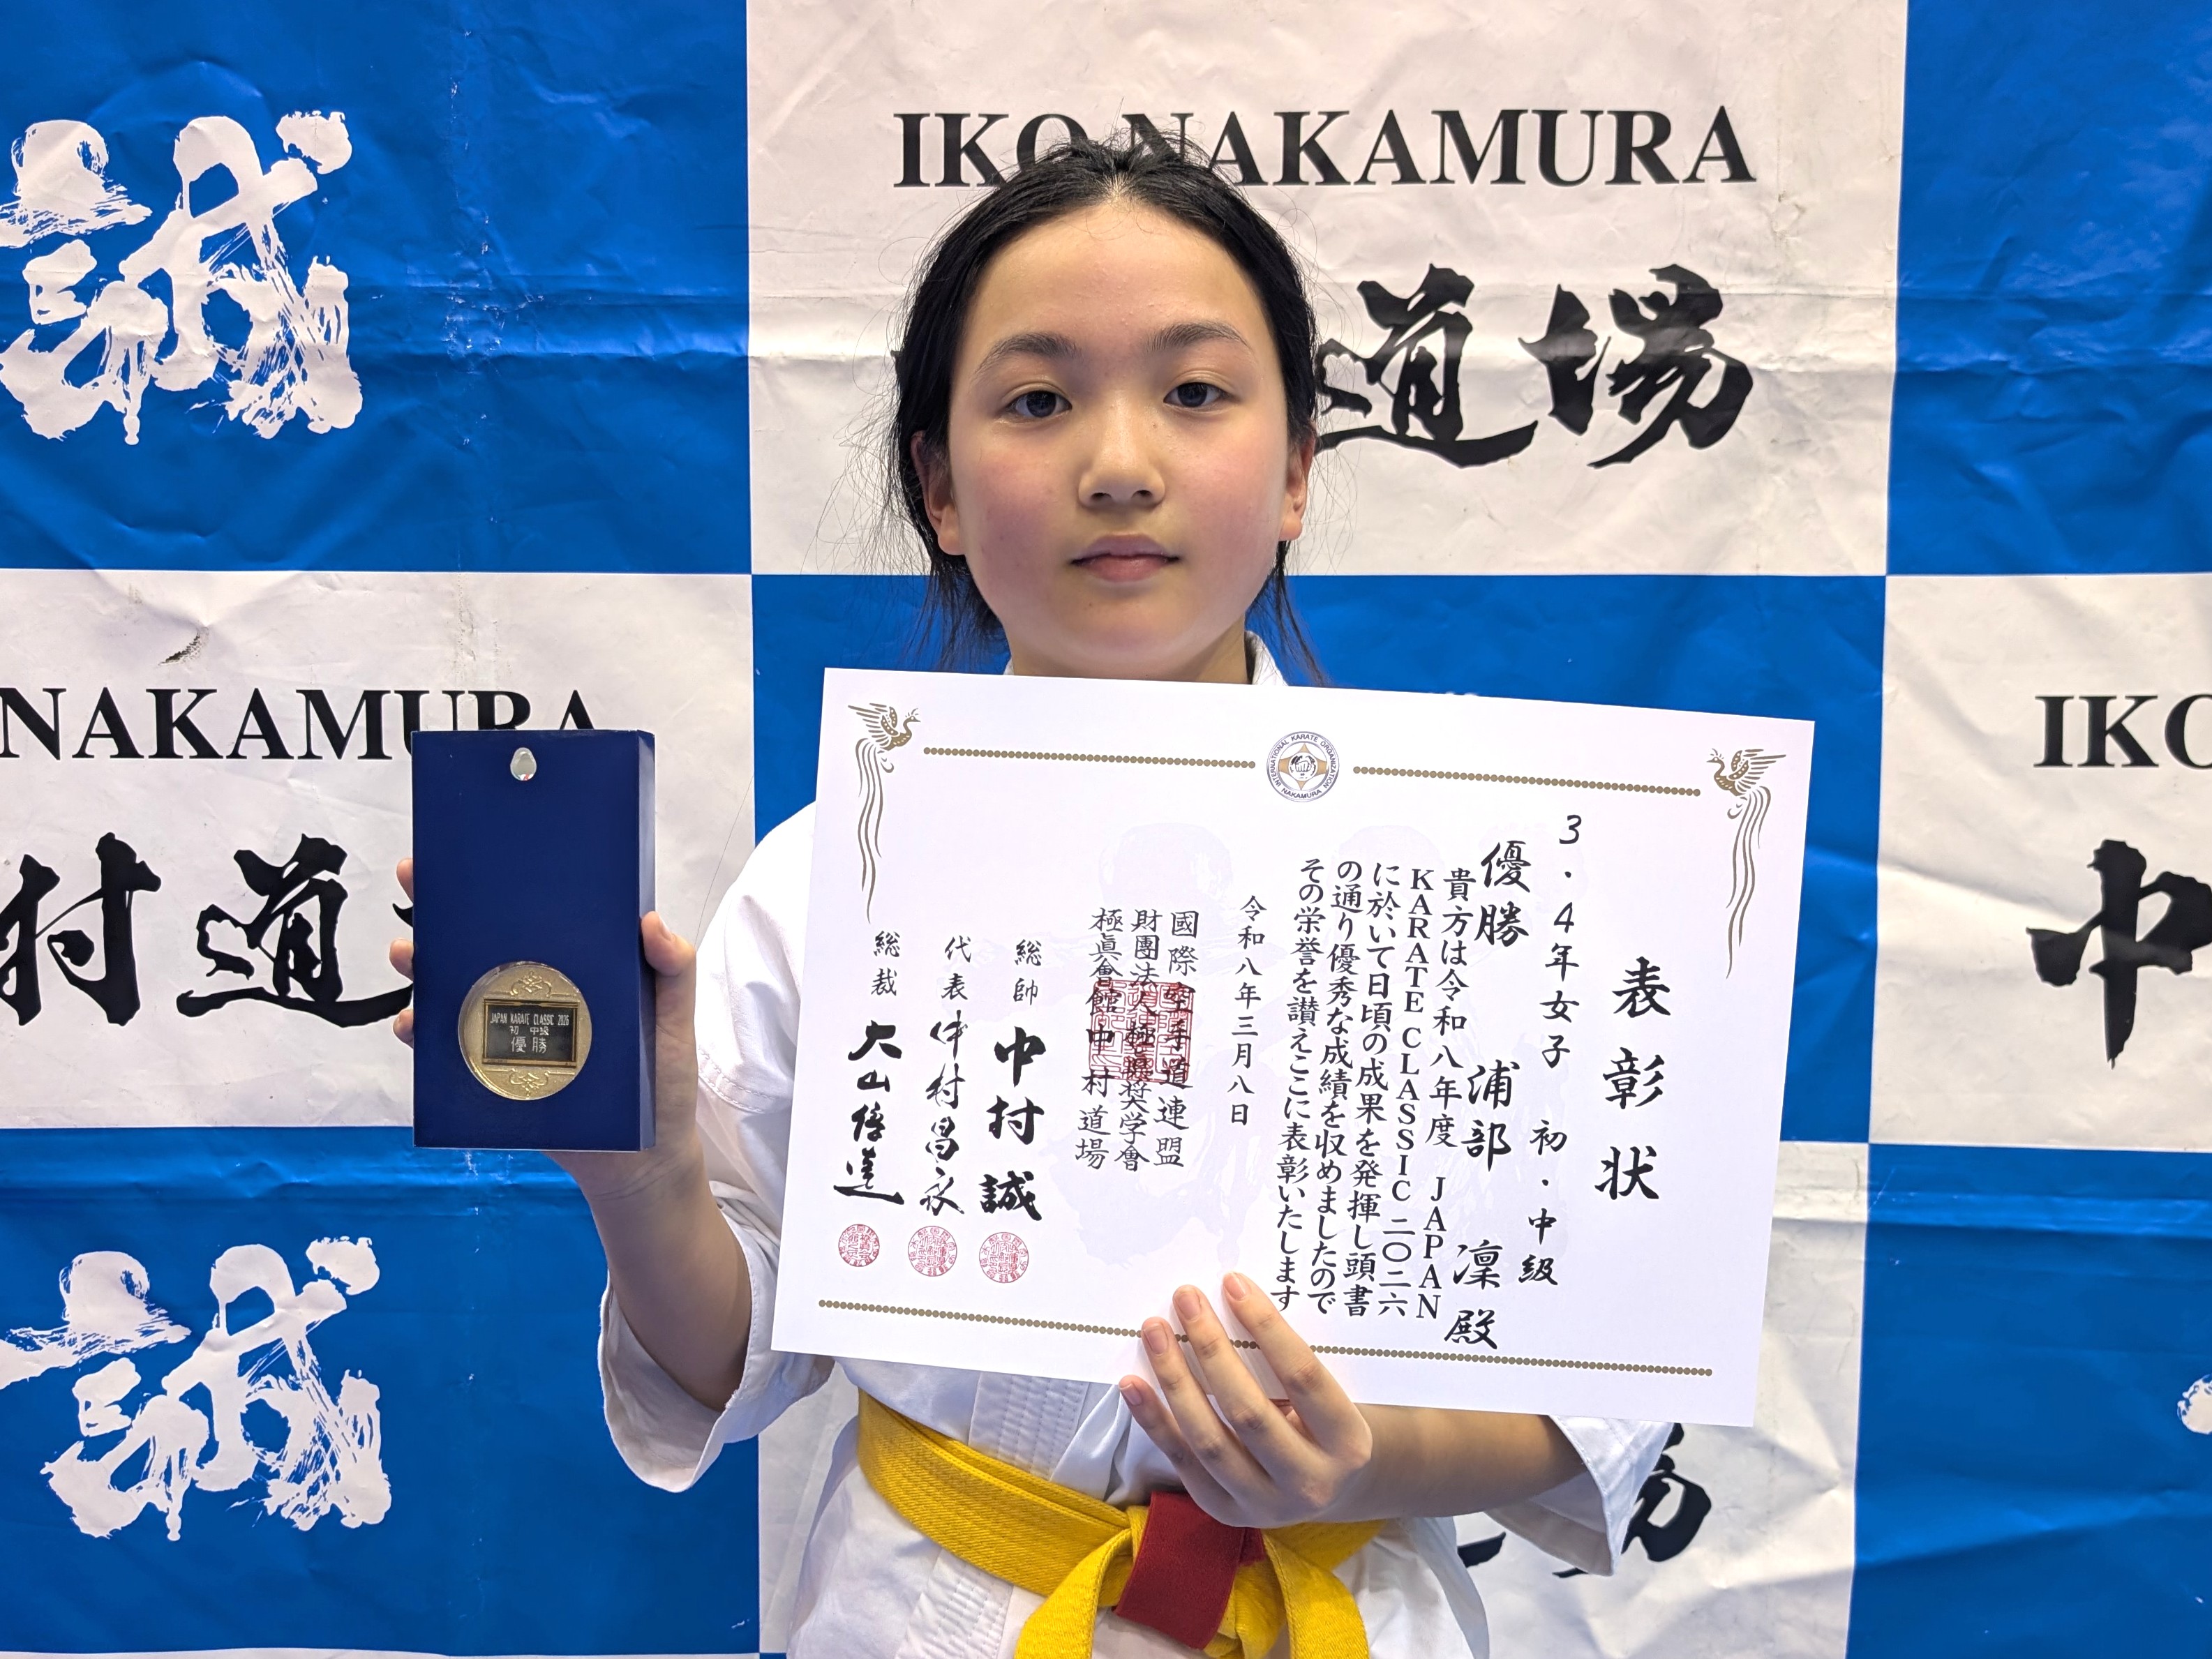 誠
IKO NAKAMURA
道場
NAKAMURA
村道
IKO
中
誠
JAPAN KARATE CLASSIC 2026
初・中級
優勝
INTERNATIONAL KARATE ORGANIZATION
NAKAMURA
表彰状
3・4年女子 初・中級
優勝 浦部 凜殿
貴方は令和八年度 JAPAN
KARATE CLASSIC 二〇二六
に於いて日頃の成果を発揮し頭書
の通り優秀な成績を収めましたので
その栄誉を讃えここに表彰いたします
令和八年三月八日
國際空手道連盟
財團法人極真奨学會
極眞會館中村道場
総帥 中村誠
代表 中村昌永
総裁 大山倍達
場